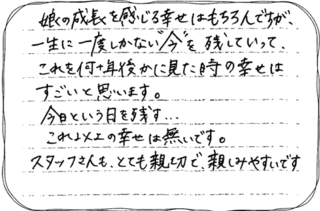 娘の成長を感じる幸せはもちろんですが、
一生に一度しかない"今"を残していって、
これを何十年後かに見た時の幸せは
すごいと思います。
今日という日を残す…
これ以上の幸せは無いです。
スタッフさんも、とても親切で、親しみやすいです